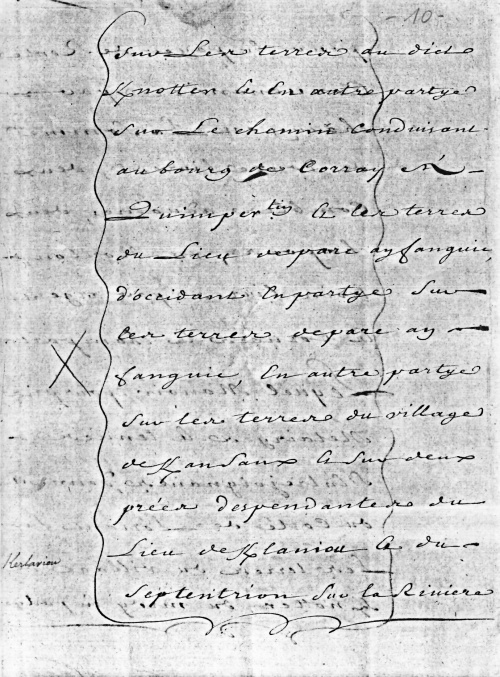 - 10 -
sur Les terres du dict
Knotter & En autre partye
sur Le chemin conduisant
au bourg de Corray et
Quimper tin & les terres
du Lieu de parc ay fanguic,
d'occidant En partye sur
les terres de parc ay
fanguic, En autre partye
sur les terres du village
de Kansaux & sur deux
prées despendantes du
Lieu de Klaniou & du
Kerlaviou
septentrion sur la Riviere